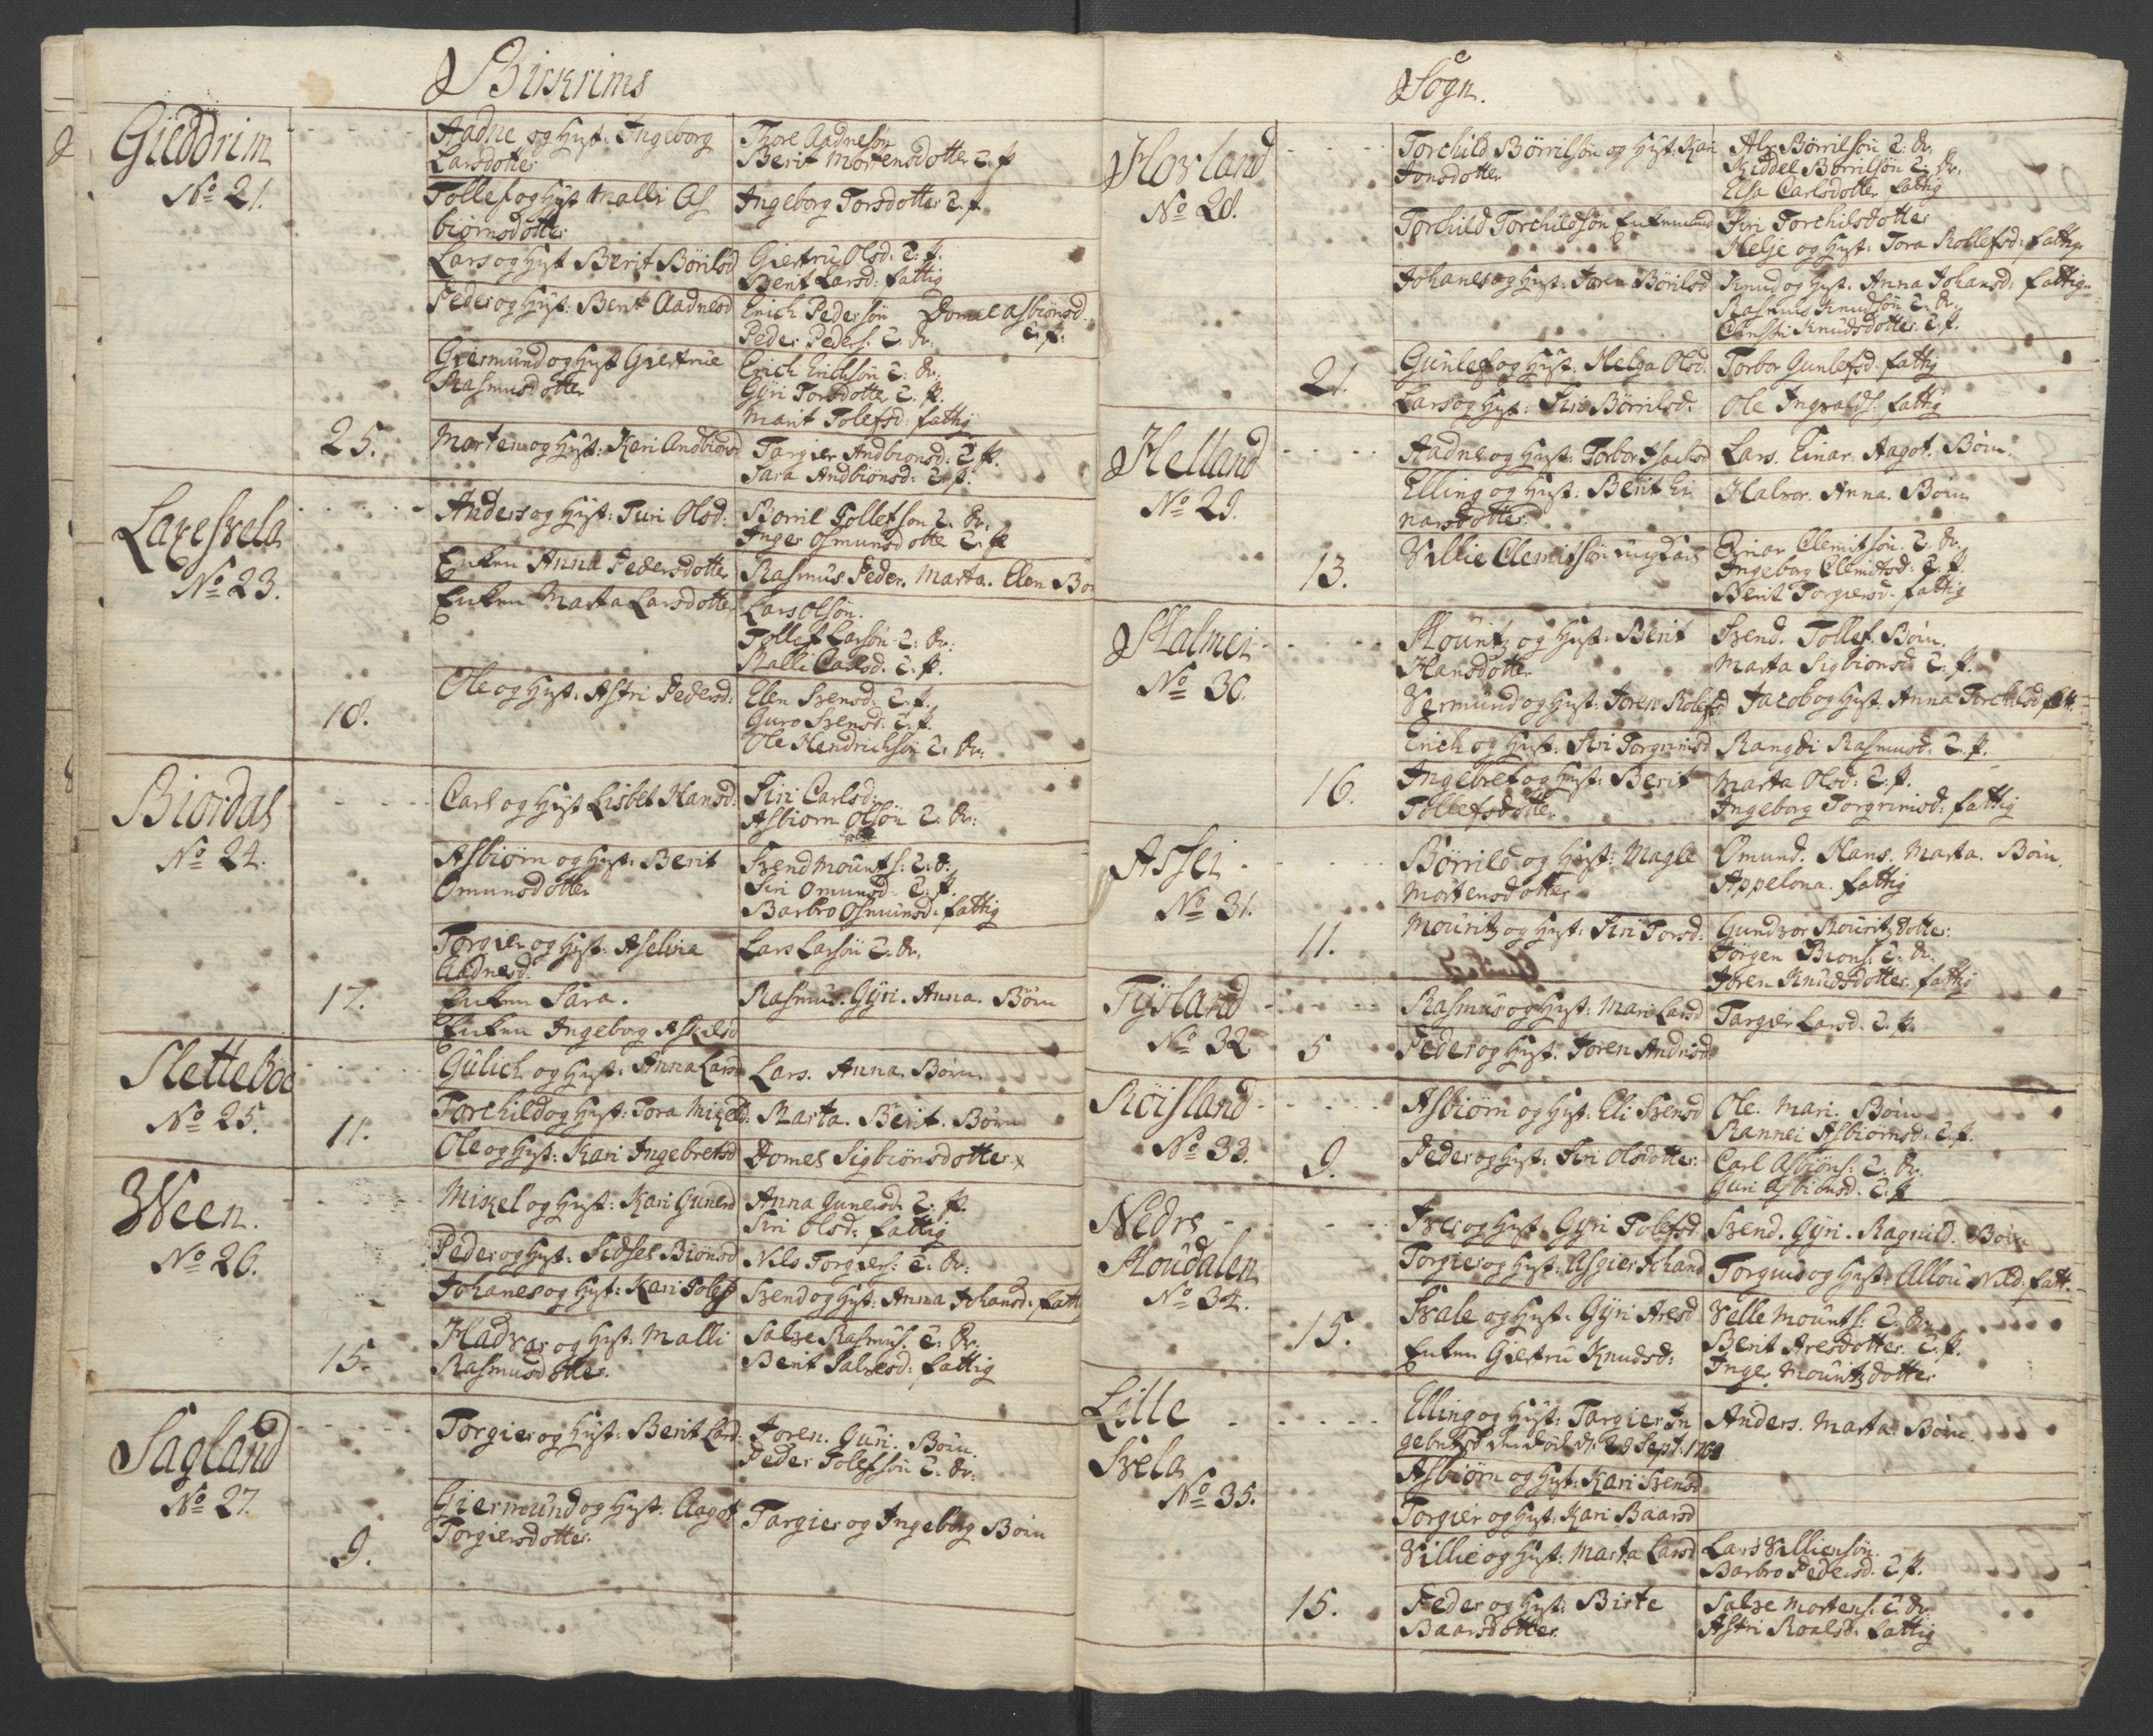 Birkrims
Gieddrim
No 21.
Aadne og Hust. Ingeborg
Larsdotter
Thore Aadnesøn
Berit Mortensdotter T. P.
Tollef og Hust Malli As
biørnsdotter
Ingeborg Torsdotter T. P.
Lars og Hust Berit Børilsd
Giertru Olsd. T. P.
Berit Larsd. fattig
Peder og Hust: Berit Aadnesd
Erich Pedersøn
Peder Peders. T. Dr.
Domil Asbiønsd.
T. P.
Giermund og Hust Giertrue
Rasmusdotter
Erich Erichsøn T. Dr.
Gyri Torsdotter T. P.
Marit Tolefsd. fattig
25.
Morten og Hust: Keri Andbionsd
Targier Andbionsd: T. P.
Sara Andbiønsd: T. P.
Laxesvela
No 23.
Anders og Hust: Turi Olsd:
Borril Tollefson T. Dr.
Inger Osmunsdotter T. P
Enken Anna Pedersdotter
Rasmus Peder. Marta. Elen Bø
Enken Marta Larsdotter
Lars Olsøn.
Tollef Larsøn T. Dr.
Malli Carlsd. T. P.
10.
Ole og Hust. Astri Pedersd:
Elen Svensd. T. P.
Guro Svensd. T. P.
Ole Hendrichsøn T. Dr.
Biordal
No 24.
Carl og Hust Lisbet Hansd:
Siri Carlsd.
Asbiorn Olsøn T. Dr:
Asbiørn og Hust. Berit
Omunsdotter
Svend Mouritz: T. D:
Siri Omunsd. T. P.
Barbro Osmunsd. fattig
Torgier og Hust. Aselvia
Aadnesd.
Lars Larsøn T. Dr.
17.
Enken Sara.
Rasmus. Gyri. Anna. Børn
Enken Ingeborg Askelsd
Slettebøe
No 25.
Gulich og Hust. Anna Larsd
Lars. Anna. Børn.
11.
Torchild og Hust: Tora Mikelsd.
Marta. Berit. Børn
Ole og Hust: Kari Ingebretsd
Domel Sigbiønsdotter x
Ween.
No 26.
Mikel og Hust: Kari Gunersd
Anna Gunersd. T. P.
Siri Olsd: fattig
Peder og Hust: Sidsel Biønsd
Nils Torgiers: T. Dr:
Johanes og Hust: Keri Tolefs
Svend og Hust: Anna Johansd. fattig
15.
Hadvar og Hust: Malli
Rasmusdotter.
Salve Rasmus: T. Dr:
Berit Salvesd: fattig
Sagland
No 27.
Torgier og Hust: Berit Larsd:
Joren. Guri. Børn.
Peder Tolefsøn T. Dr:
9.
Giermund og Hust. Aagot
Torgiersdotter.
Targier og Ingeborg Børn
Sogn.
Hovland
No 28.
Torchild Børrilsøn og Hust: Kari
Jonsdotter
Alv Børrilsøn T. Dr.
Kiddel Børrilsøn T. Dr.
Elsa Carlsdotter fattig
Torchild Torchildsøn Enkemand
Siri Torchilsdotter
Helje og Hust: Tora Rollefsd: fattige
Johanes og Hust: Joren Børilsd
Knud og Hust. Anna Johansd: fattige
Rasmus Knudsøn T. Dr.
Knudsdotter. T. P.
21.
Gunlef og Hust. Helga Olsd.
Torbor Gunlefsd: fattig
Lars og Hust: Siri Børrilsd:
Ole Ingvalds: fattig
Helland
No 29.
Aadne og Hust: Torbor Isachsd
Lars. Einar. Aagot. Børn.
Elling og Hust: Berit Ei
narsdotter.
Halvor. Anna. Børn
13.
Villie Clemitsøn ungkarl
Einar Clemitsøn. T. Dr.
Ingeborg Clemitsd: T. P.
Berit Torgiersd. fattig
Malmei
No 30.
Mouritz og Hust. Berit
Hansdotter
Svend. Tollef. Børn.
Marta Sigbionsd. T. P.
Vermund og Hust. Joren Rolefsd
Jacob og Hust. Anna Torchilsd fatt.
Erich og Hust: Siri Torgrimsd
Rangdi Rasmusd. T. P.
16.
Ingebret og Hust: Berit
Tollefsdotter
Marta Olsd: T. P.
Ingeborg Torgrimsd: fattig
Assei
No 31.
Børrild og Hust: Magle
Mortensdotter
Omund. Hans. Marta. Børn
Appelona. fattig
11.
Mouritz og Hust: Siri Torsd:
Gundvor Mouritzdotter.
Jørgen Bions: T. Dr.
Joren Knudsdotter. fattig
Tysland
No 32
Rasmus og Hust: Mari Larsd
Targier Larsd. T. P.
5
Peder og Hust: Joren Andrisd
Røisland
No 33.
Asbiørn og Hust. Eli Svensd
Ole. Mari. Børn
Rannei Asbiørnsd. T. P.
9.
Peder og Hust: Siri Olsdotter.
Carl Asbiøns: T. Dr.
Guri Asbiønsd. T. P
Nedre
Moudalen
No 34.
Iver og Hust. Gyri Tolefsd:
Svend. Gyri. Ragnild. Børn
Torgier og Hust. Asgier Johansd
Torgius og Hust. Allou Nilsd. fatt.
15.
Svale og Hust. Gyri Aresd
Velle Mouritz: T. Dr.
Berit Aresdotter. T. P.
Enken Giertru Knudsd:
Inger Mouritzdotter
Lille
Svela
No 35.
Elling og Hust: Targier In
gebretsd død d: 29 Sept: 1761
Anders. Marta. Børn.
Asbiørn og Hust: Kari Svensd
Torgier og Hust: Kari Baarsd
Villie og Hust: Marta Larsd
Lars Villiensøn.
Barbro Pedersd. T. P.
15.
Peder og Hust: Birte
Baarsdotter
Salve Mortens. T. Dr
Astri Roalsd. fattig